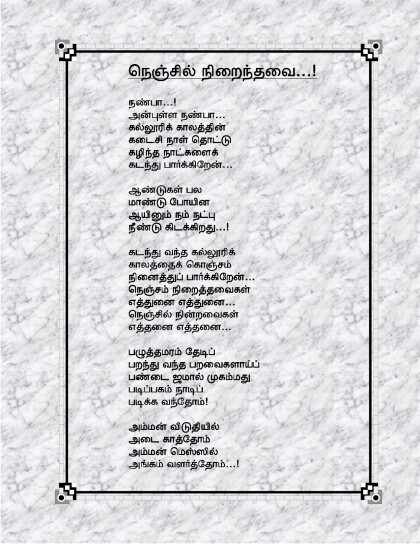 நெஞ்சில் நிறைந்தவை...!
நண்பா...!
அன்புள்ள நண்பா...
கல்லூரிக் காலத்தின்
கடைசி நாள் தொட்டு
கழிந்த நாட்களைக்
கடந்து பார்க்கிறேன்...
ஆண்டுகள் பல
மாண்டு போயின
ஆயினும் நம் நட்பு
நீண்டு கிடக்கிறது...!
கடந்து வந்த கல்லூரிக்
காலத்தைக் கொஞ்சம்
நினைத்துப் பார்க்கிறேன்...
நெஞ்சம் நிறைத்தவைகள்
எத்துனை எத்துனை...
நெஞ்சில் நின்றவைகள்
எத்தனை எத்தனை...
பழுத்தமரம் தேடிப்
பறந்து வந்த பறவைகளாய்ப்
பண்டை ஜமால் முகம்மது
படிப்பகம் நாடிப்
படிக்க வந்தோம்!
அம்மன் விடுதியில்
அடை காத்தோம்
அம்மன் மெஸ்ஸில்
அங்கம் வளர்த்தோம்...!